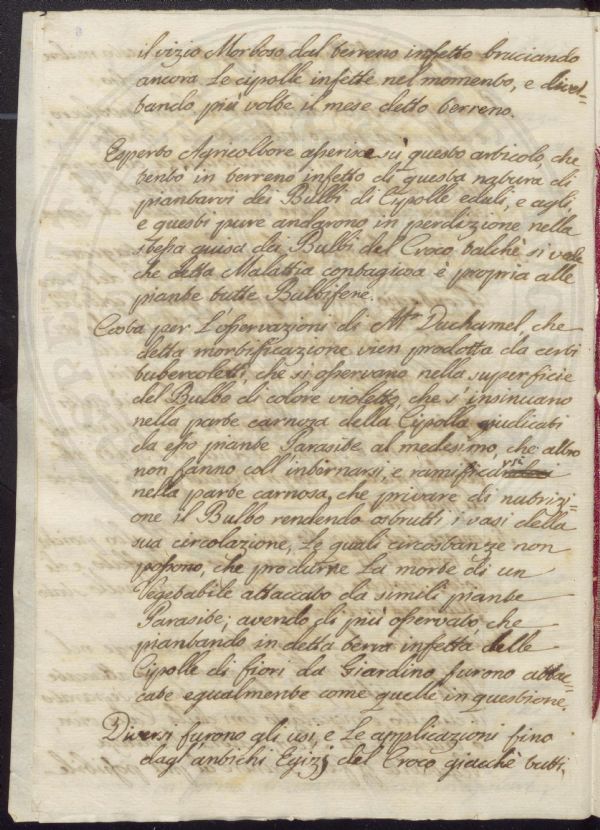 il vizio Morboso dal terreno infetto bruciando
ancora Le cipolle infette nel momento, e divol=
tando più volte il mese detto terreno.
Esperto Agricoltore asserisce sù questo articolo, che
tentò in terreno infetto di questa natura di
piantarvi dei Bulbi di Cipolle eduli, e agli,
e questi pure andarono in perdizione nella
stessa guisa da Bulbi del Croco talchè si vede
che detta Malattia contagiosa è propria alle
piante tutte Bulbifere.
Costa per L'osservazioni di Mr. Duchamel, che
detta morbificazione vien prodotta da certi
tubercoletti, che si osservano nella superficie
del Bulbo di colore violetto, che s'insinuano
nella parte carnoza della Cipolla giudicati
da esso piante Parasite al medesimo, che altro
non fanno coll'intornarsi, e ramificarsi
nella parte carnosa, che privare di nutrizi=
one il Bulbo rendendo ostrutti i vasi della
sua circolazione, Le quali circostanze non
possono, che produrre La morte di un
Vegetabile attaccato da simili piante
Parasite; avendo di più osservato, che
piantando in detta terra infetta delle
Cipolle di fiori da Giardino furono attac=
cate egualmente come quelle in questione.
Diversi furono gli usi, e Le applicazioni fino
dagl'antichi Egizj del Croco giacchè tutti,